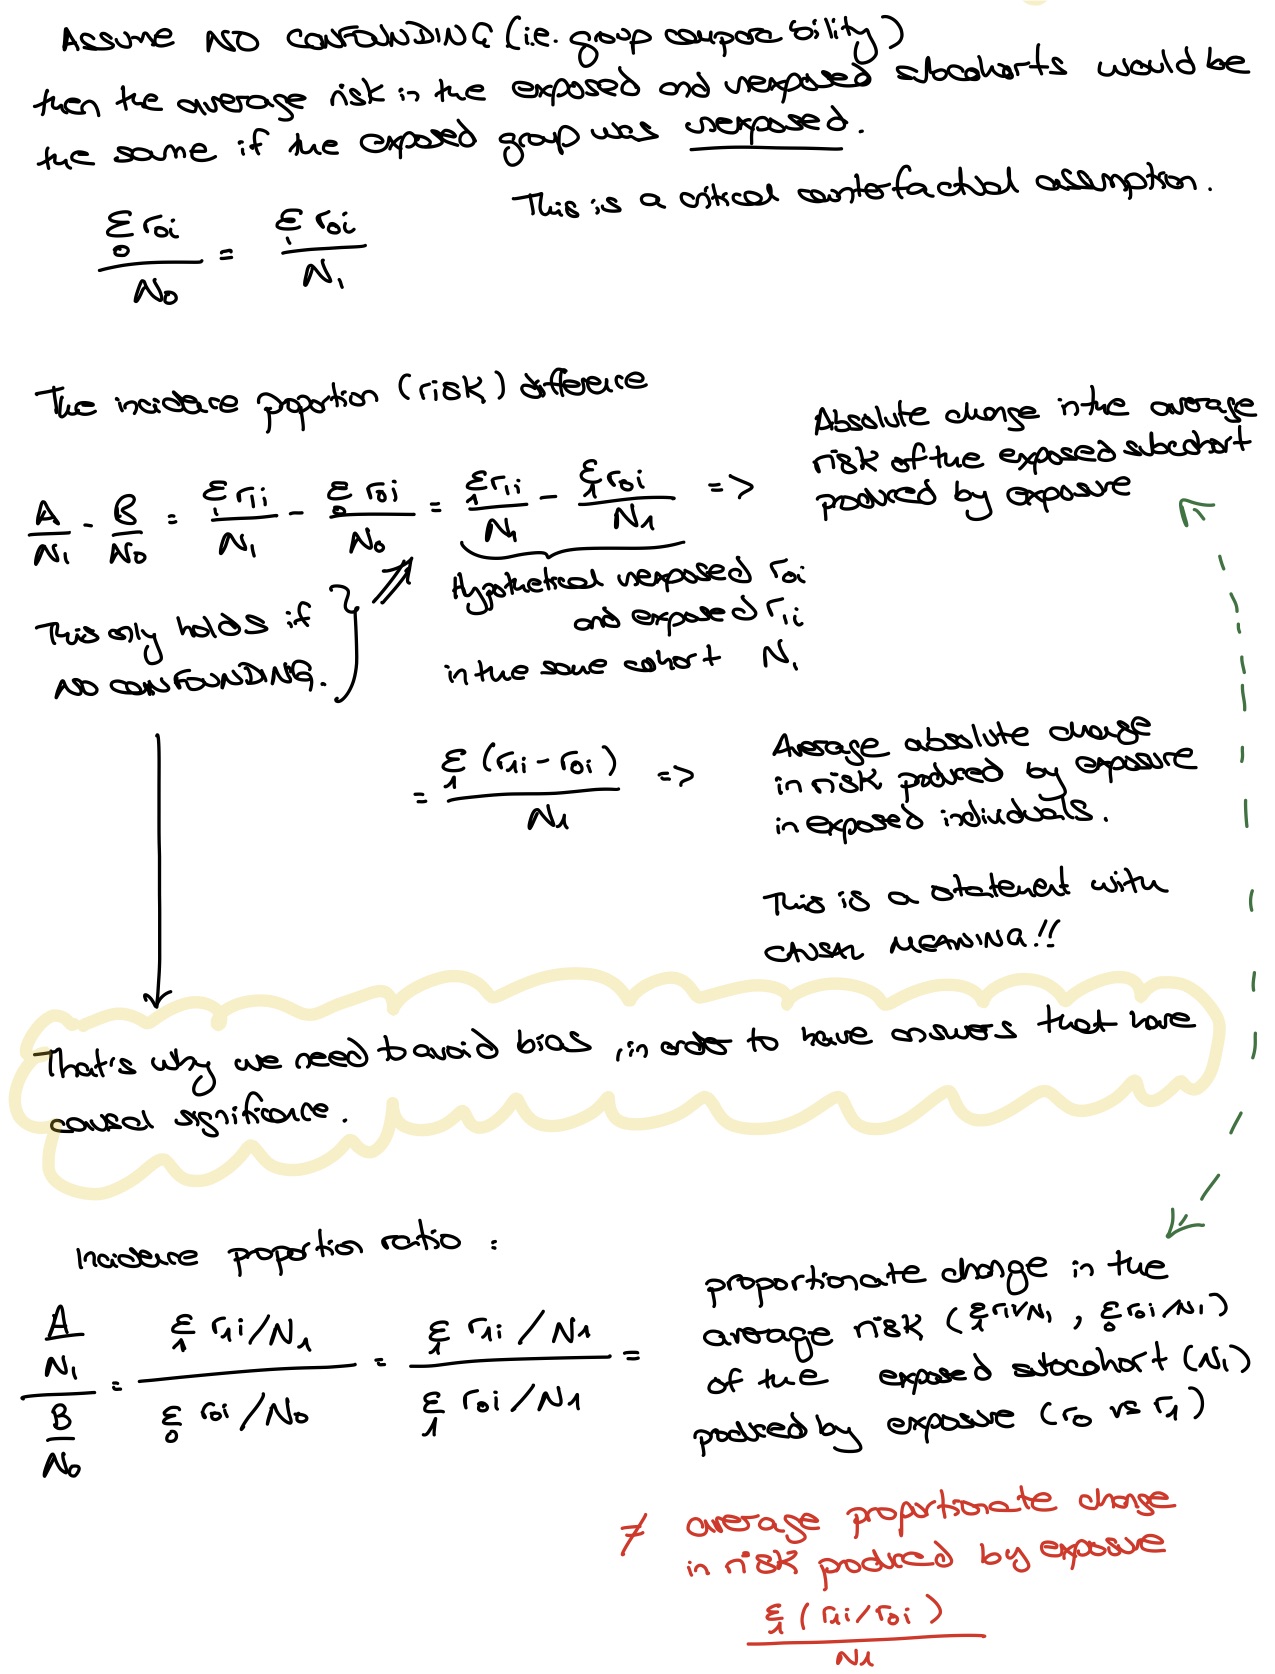 ASSUME NO CONFOUNDING (i.e. group comparability)
then the average risk in the exposed and unexposed subcohorts would be
the same if the exposed group was unexposed.
This is a critical counterfactual assumption.
Σ₀ r₀ᵢ / N₀ = Σ₁ r₀ᵢ / N₁
The incidence proportion (risk) difference
A/N₁ - B/N₀ = Σ₁ r₁ᵢ / N₁ - Σ₀ r₀ᵢ / N₀ = Σ₁ r₁ᵢ / N₁ - Σ₁ r₀ᵢ / N₁ =>
Absolute change in the average
risk of the exposed subcohort
produced by exposure
This only holds if
NO CONFOUNDING.
Hypothetical unexposed r₀ᵢ
and exposed r₁ᵢ
in the same cohort N₁
= Σ₁ (r₁ᵢ - r₀ᵢ) / N₁ =>
Average absolute change
in risk produced by exposure
in exposed individuals.
This is a statement with
CAUSAL MEANING!!
That's why we need to avoid bias, in order to have answers that have
causal significance.
Incidence proportion ratio :
(A/N₁) / (B/N₀) = (Σ₁ r₁ᵢ/N₁) / (Σ₀ r₀ᵢ/N₀) = (Σ₁ r₁ᵢ/N₁) / (Σ₁ r₀ᵢ/N₁) =
proportionate change in the
average risk (Σ₁ r₁ᵢ/N₁, Σ₀ r₀ᵢ/N₁)
of the exposed subcohort (N₁)
produced by exposure (r₀ vs r₁)
≠ average proportionate change
in risk produced by exposure
Σ₁ (r₁ᵢ/r₀ᵢ) / N₁